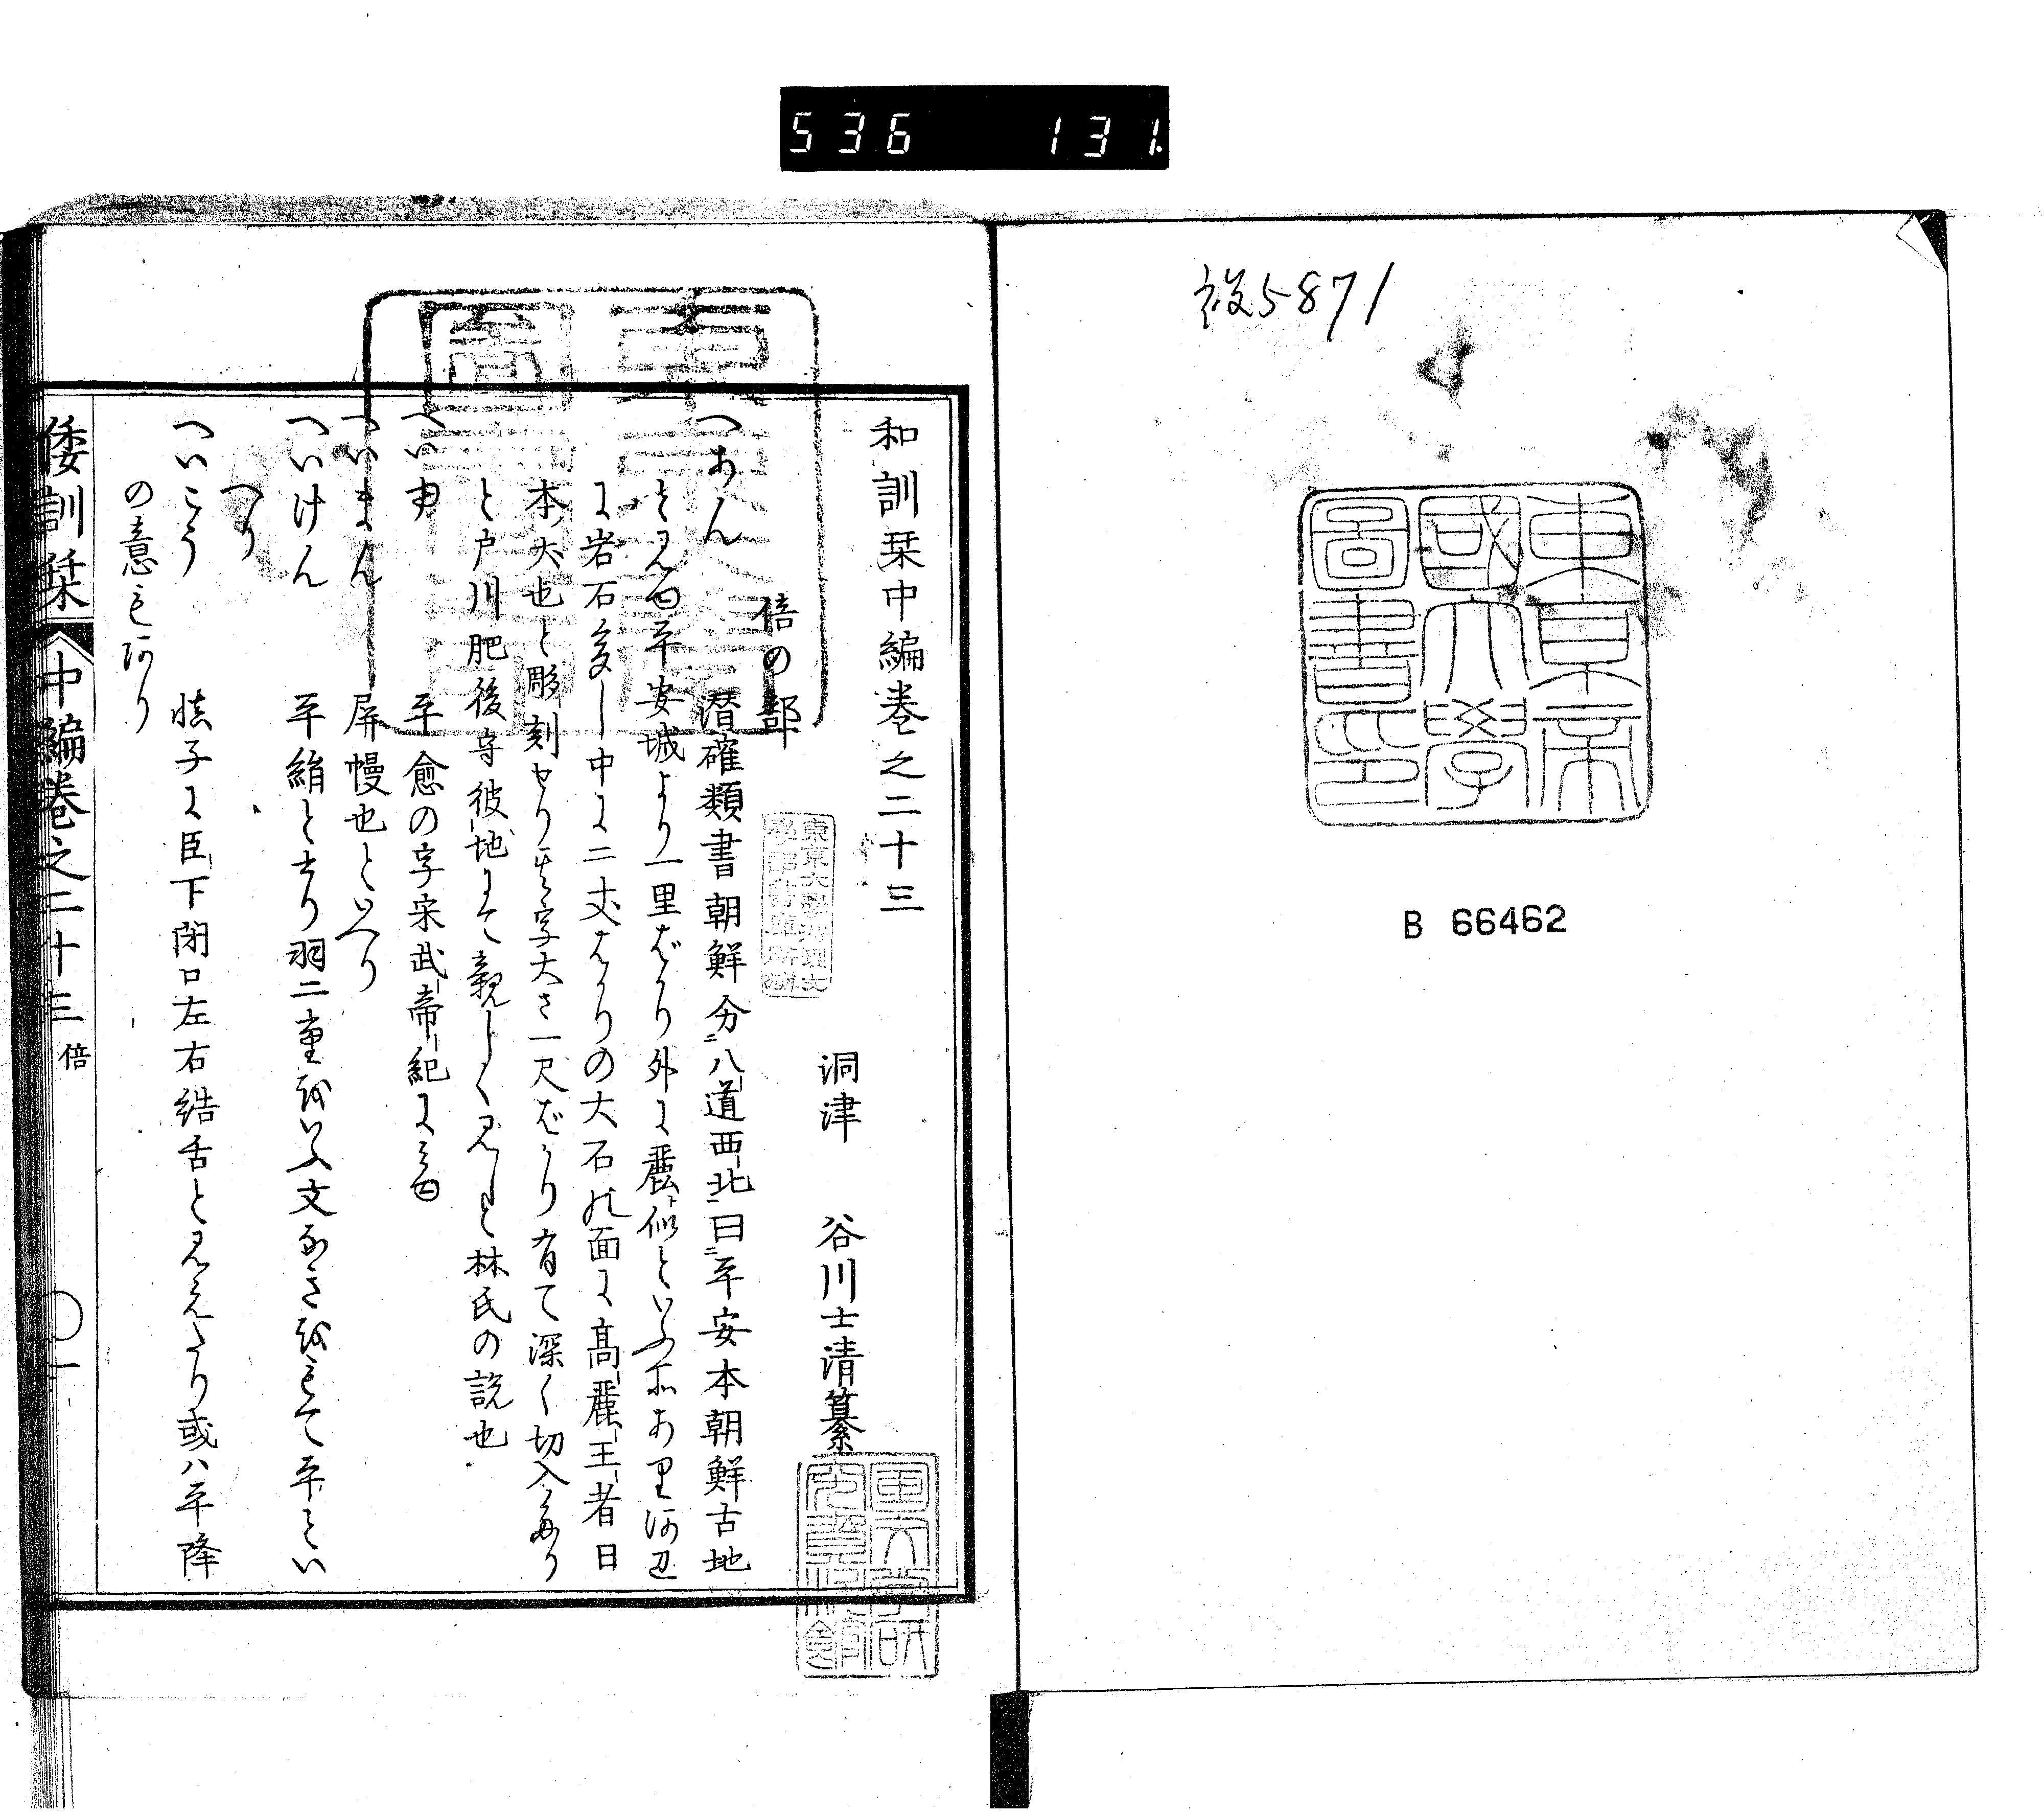 536 131
5871
東京帝
國大學
圖書印
B 66462
和訓栞中編巻之二十三
洞津 谷川士清纂
倍の部
へあん 潜確類書朝鮮分八道西北曰平安本朝鮮古地
と見ゆ平安城より一里ばかり外に麗似といふ所あり河辺
に岩石多し中に二丈ばかりの大石の面に高麗王者日
本犬也と彫刻せり其字大さ一尺ばかり有て深く切入たり
と戸川肥後守彼地にて親しく見しと林氏の説也
へいゆ 平愈の字宋武帝紀に見ゆ
へいまん 屏幔也といへり
へいけん 平絹と書り羽二重をいふ文なきをもて平とい
へり
へいこう 慎子に臣下閉口左右結舌と見えたり或ハ平降
の意もあり
倭訓栞 中編巻之二十三 倍 一